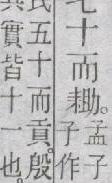 七十而耡。孟子
子作
民五十而貢。殷
其實皆十一也。